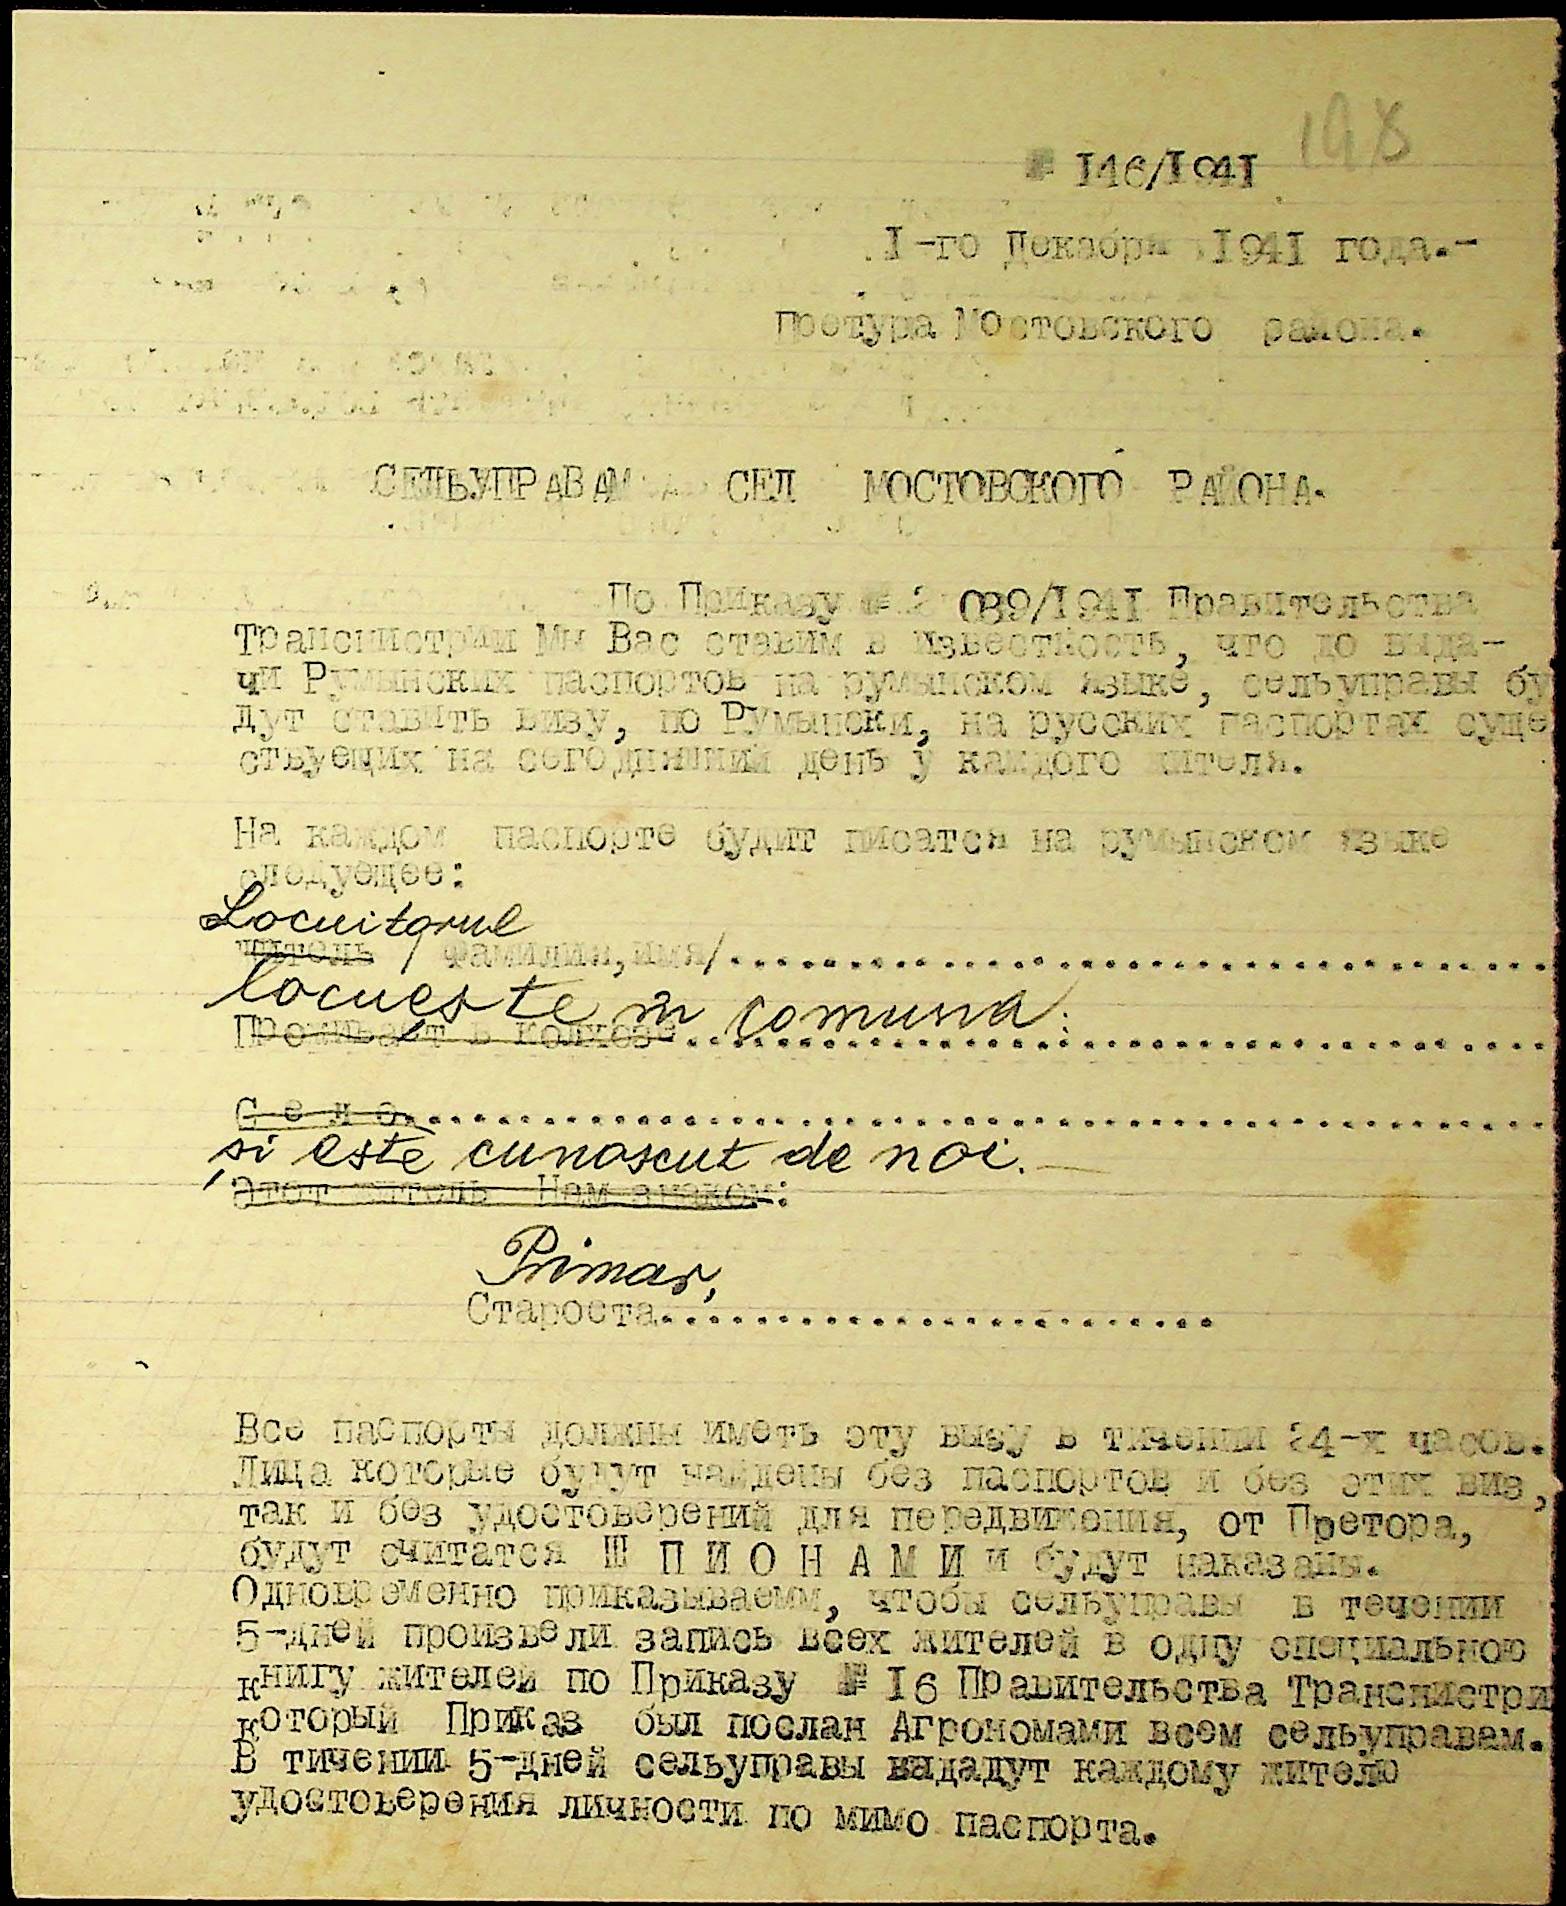 198
№ 146/1941
1-го Декабря 1941 года.-
Претура Мостовского района.
СЕЛЬУПРАВАМ СЕЛ МОСТОВСКОГО РАЙОНА.
По Приказу № 2 089/1941 Правительства
Транснистрии Мы Вас ставим в известность, что до выда-
чи Румынских паспортов на румынском языке, сельуправы бу
дут ставить визу, по Румынски, на русских паспортах суще
ствующих на сегодняшний день у каждого жителя.
На каждом паспорте будит писатся на румынском языке
следующее:
Locuitorul
житель / фамилия, имя/..........
locueşte în comuna:
Проживает в колхозе..........
С е л о..........
şi este cunoscut de noi.—
Этот житель Нам знаком:
Primar,
Староста..........
Все паспорты должны иметь эту визу в тичении 24-х часов.
Лица которые будут найдены без паспортов и без этих виз,
так и без удостоверений для передвижения, от Претора,
будут считатся Ш П И О Н А М И и будут наказаны.
Одновременно приказываемм, чтобы сельуправы в течении
5-дней произвели запись всех жителей в одну специальною
книгу жителей по Приказу № 16 Правительства Транснистри
который Приказ был послан Агрономами всем сельуправам.
В тичении 5-дней сельуправы выдадут каждому жителю
удостоверения личности по мимо паспорта.